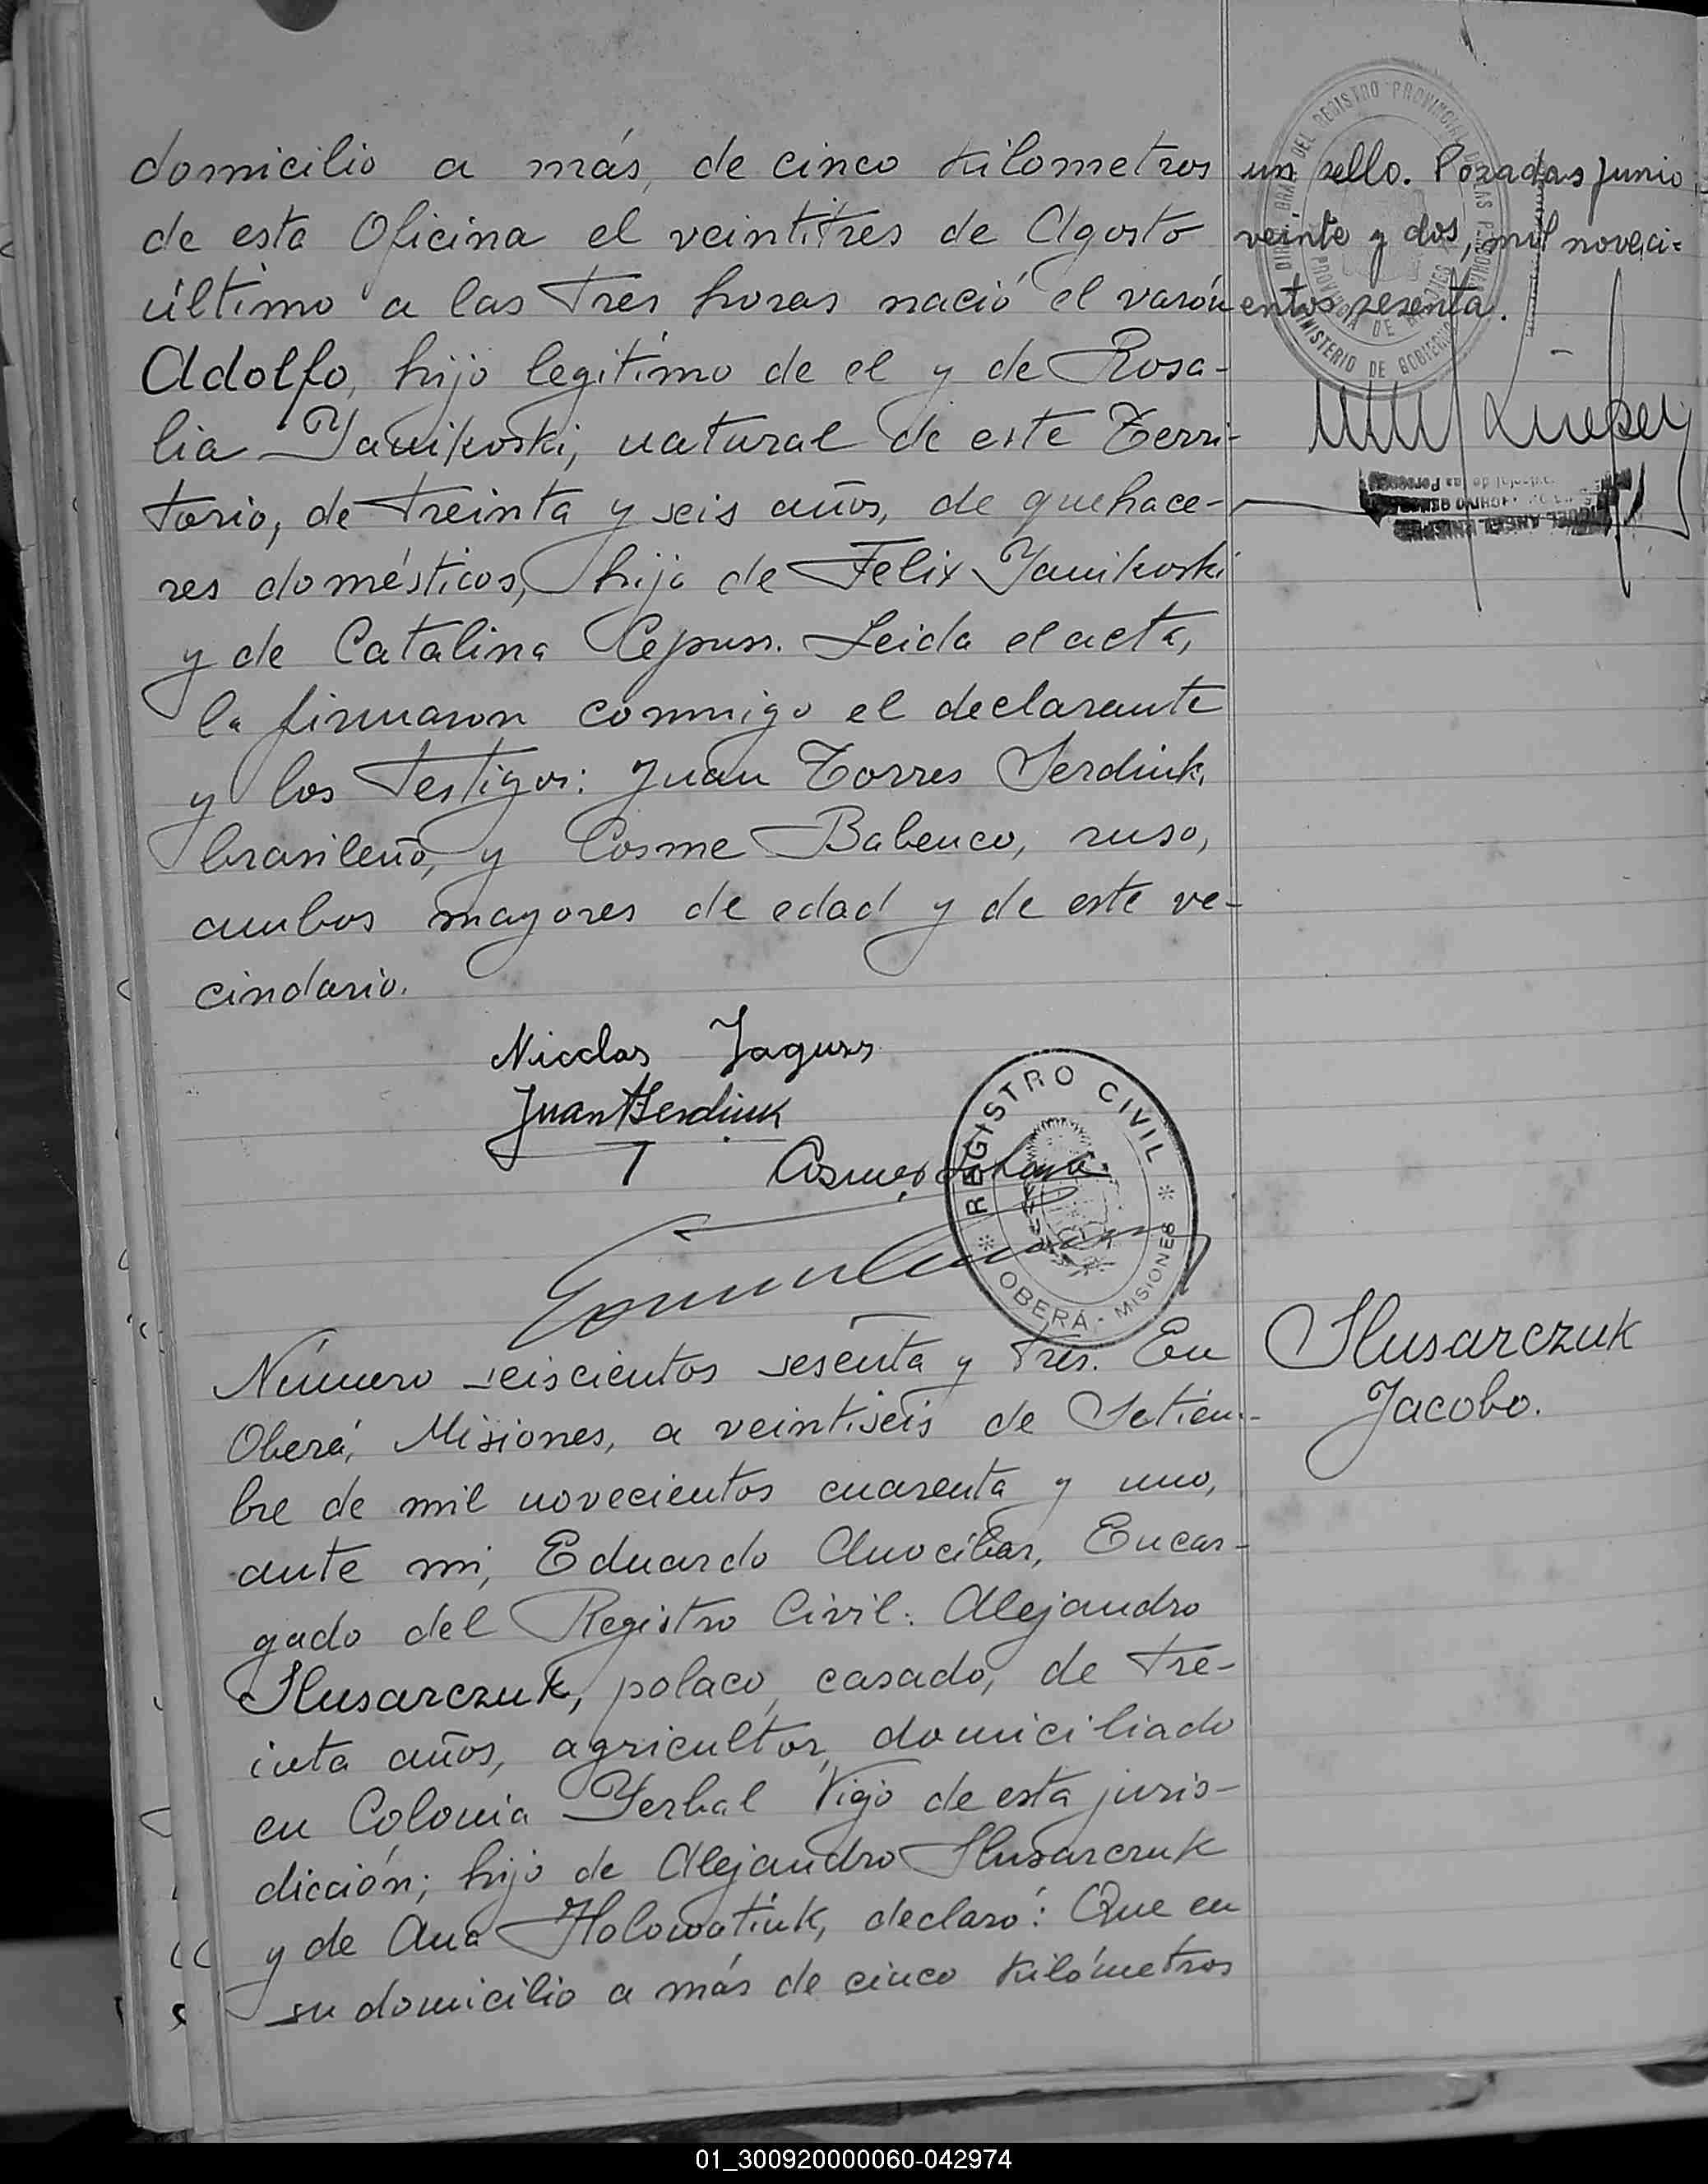 domicilio a más, de cinco kilometros
de esta Oficina el veintitres de Agosto
último a las tres horas nació el varón
Adolfo, hijo legítimo de el y de Rosa-
lia Yanikoski, natural de este Terri-
torio, de treinta y seis años, de quehace-
res domésticos, hija de Felix Yanikoski
y de Catalina Cepun. Leida el acta,
la firmaron conmigo el declarante
y los testigos: Juan Torres Serdiuk,
brasileño, y Cosme Babenco, ruso,
ambos mayores de edad y de este ve-
cindario.
un sello. Posadas Junio
veinte y dos, mil noveci=
entos sesenta.
DEL REGISTRO PROVINCIAL DE LAS PERSONAS
MINISTERIO DE GOBIERNO
PROVINCIA DE MISIONES
Nicolas
Juan T Serdiuk
REGISTRO CIVIL
OBERÁ - MISIONES
Número seiscientos sesenta y tres. En
Oberá, Misiones, a veintiseis de Setiem-
bre de mil novecientos cuarenta y uno,
ante mi, Eduardo Anocibar, Encar-
gado del Registro Civil: Alejandro
Slusarczuk, polaco, casado, de tre-
inta años, agricultor, domiciliado
en Colonia Yerbal Viejo de esta juris-
dicción; hijo de Alejandro Slusarczuk
y de Ana Holowatiuk, declaró: Que en
su domicilio a más de cinco kilómetros
Slusarczuk
Jacobo.
01_300920000060-042974